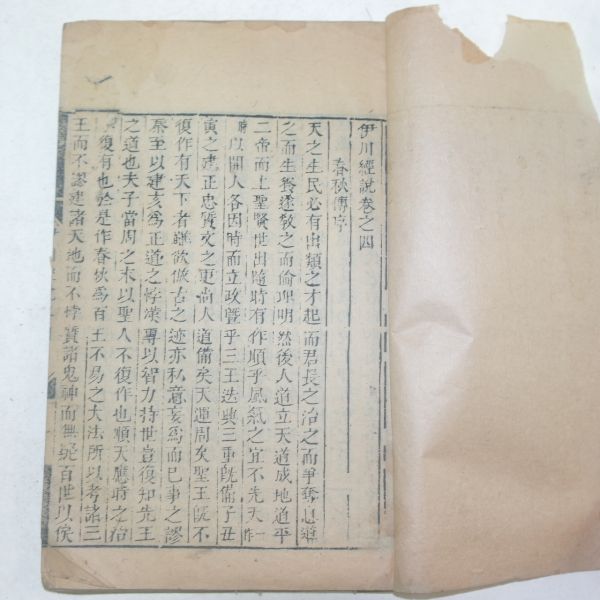 伊川經說卷之四
春秋傳序
天之生民必有出類之才起而君長之治之而爭奪息導
之而生養遂敎之而倫理明然後人道立天道成地道平
二帝而上聖賢世出隨時有作順乎風氣之宜不先天
以開人各因時而立政曁乎三王迭興三重旣備子丑
寅之建正忠質文之更尙人道備矣天運周矣聖王旣不
復作有天下者雖欲倣古之迹亦私意妄爲而已事之謬
秦至以建亥爲正道之悖漢專以智力持世豈復知先王
之道也夫子當周之末以聖人不復作也順天應時之治
不復有也於是作春秋爲百王不易之大法所以考諸三
王而不謬建諸天地而不悖質諸鬼神而無疑百世以俟